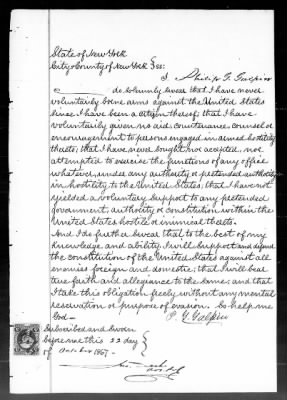 State of New York
City & County of New York } ss:
I, Philip G. Galpin
do solemnly swear that I have never
voluntarily borne arms against the United States
since I have been a citizen thereof; that I have
voluntarily given no aid, countenance, counsel or
encouragement to persons engaged in armed hostility
thereto; that I have never sought nor accepted, nor
attempted to exercise the functions of any office
whatever, under any authority or pretended authority
in hostility to the United States; that I have not
yielded a voluntary support to any pretended
government, authority or constitution within the
United States hostile or inimical thereto.
And I do further swear that to the best of my
knowledge and ability, I will support and defend
the constitution of the United States against all
enemies foreign and domestic; that I will bear
true faith and allegiance to the same; and that
I take this obligation freely without any mental
reservation or purpose of evasion. So help me
God—
P. G. Galpin
Subscribed and Sworn
before me this 22 day
of October 1867